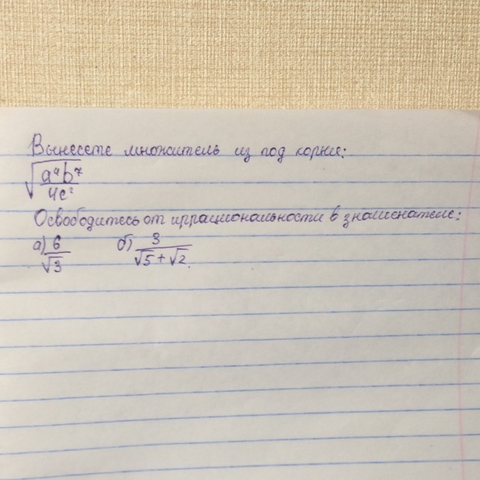 Вынесете множитель из под корня:
√(a⁴b⁷/4c²)
Освободитесь от иррациональности в знаменателе:
а) 6/√3 б) 3/(√5+√2)